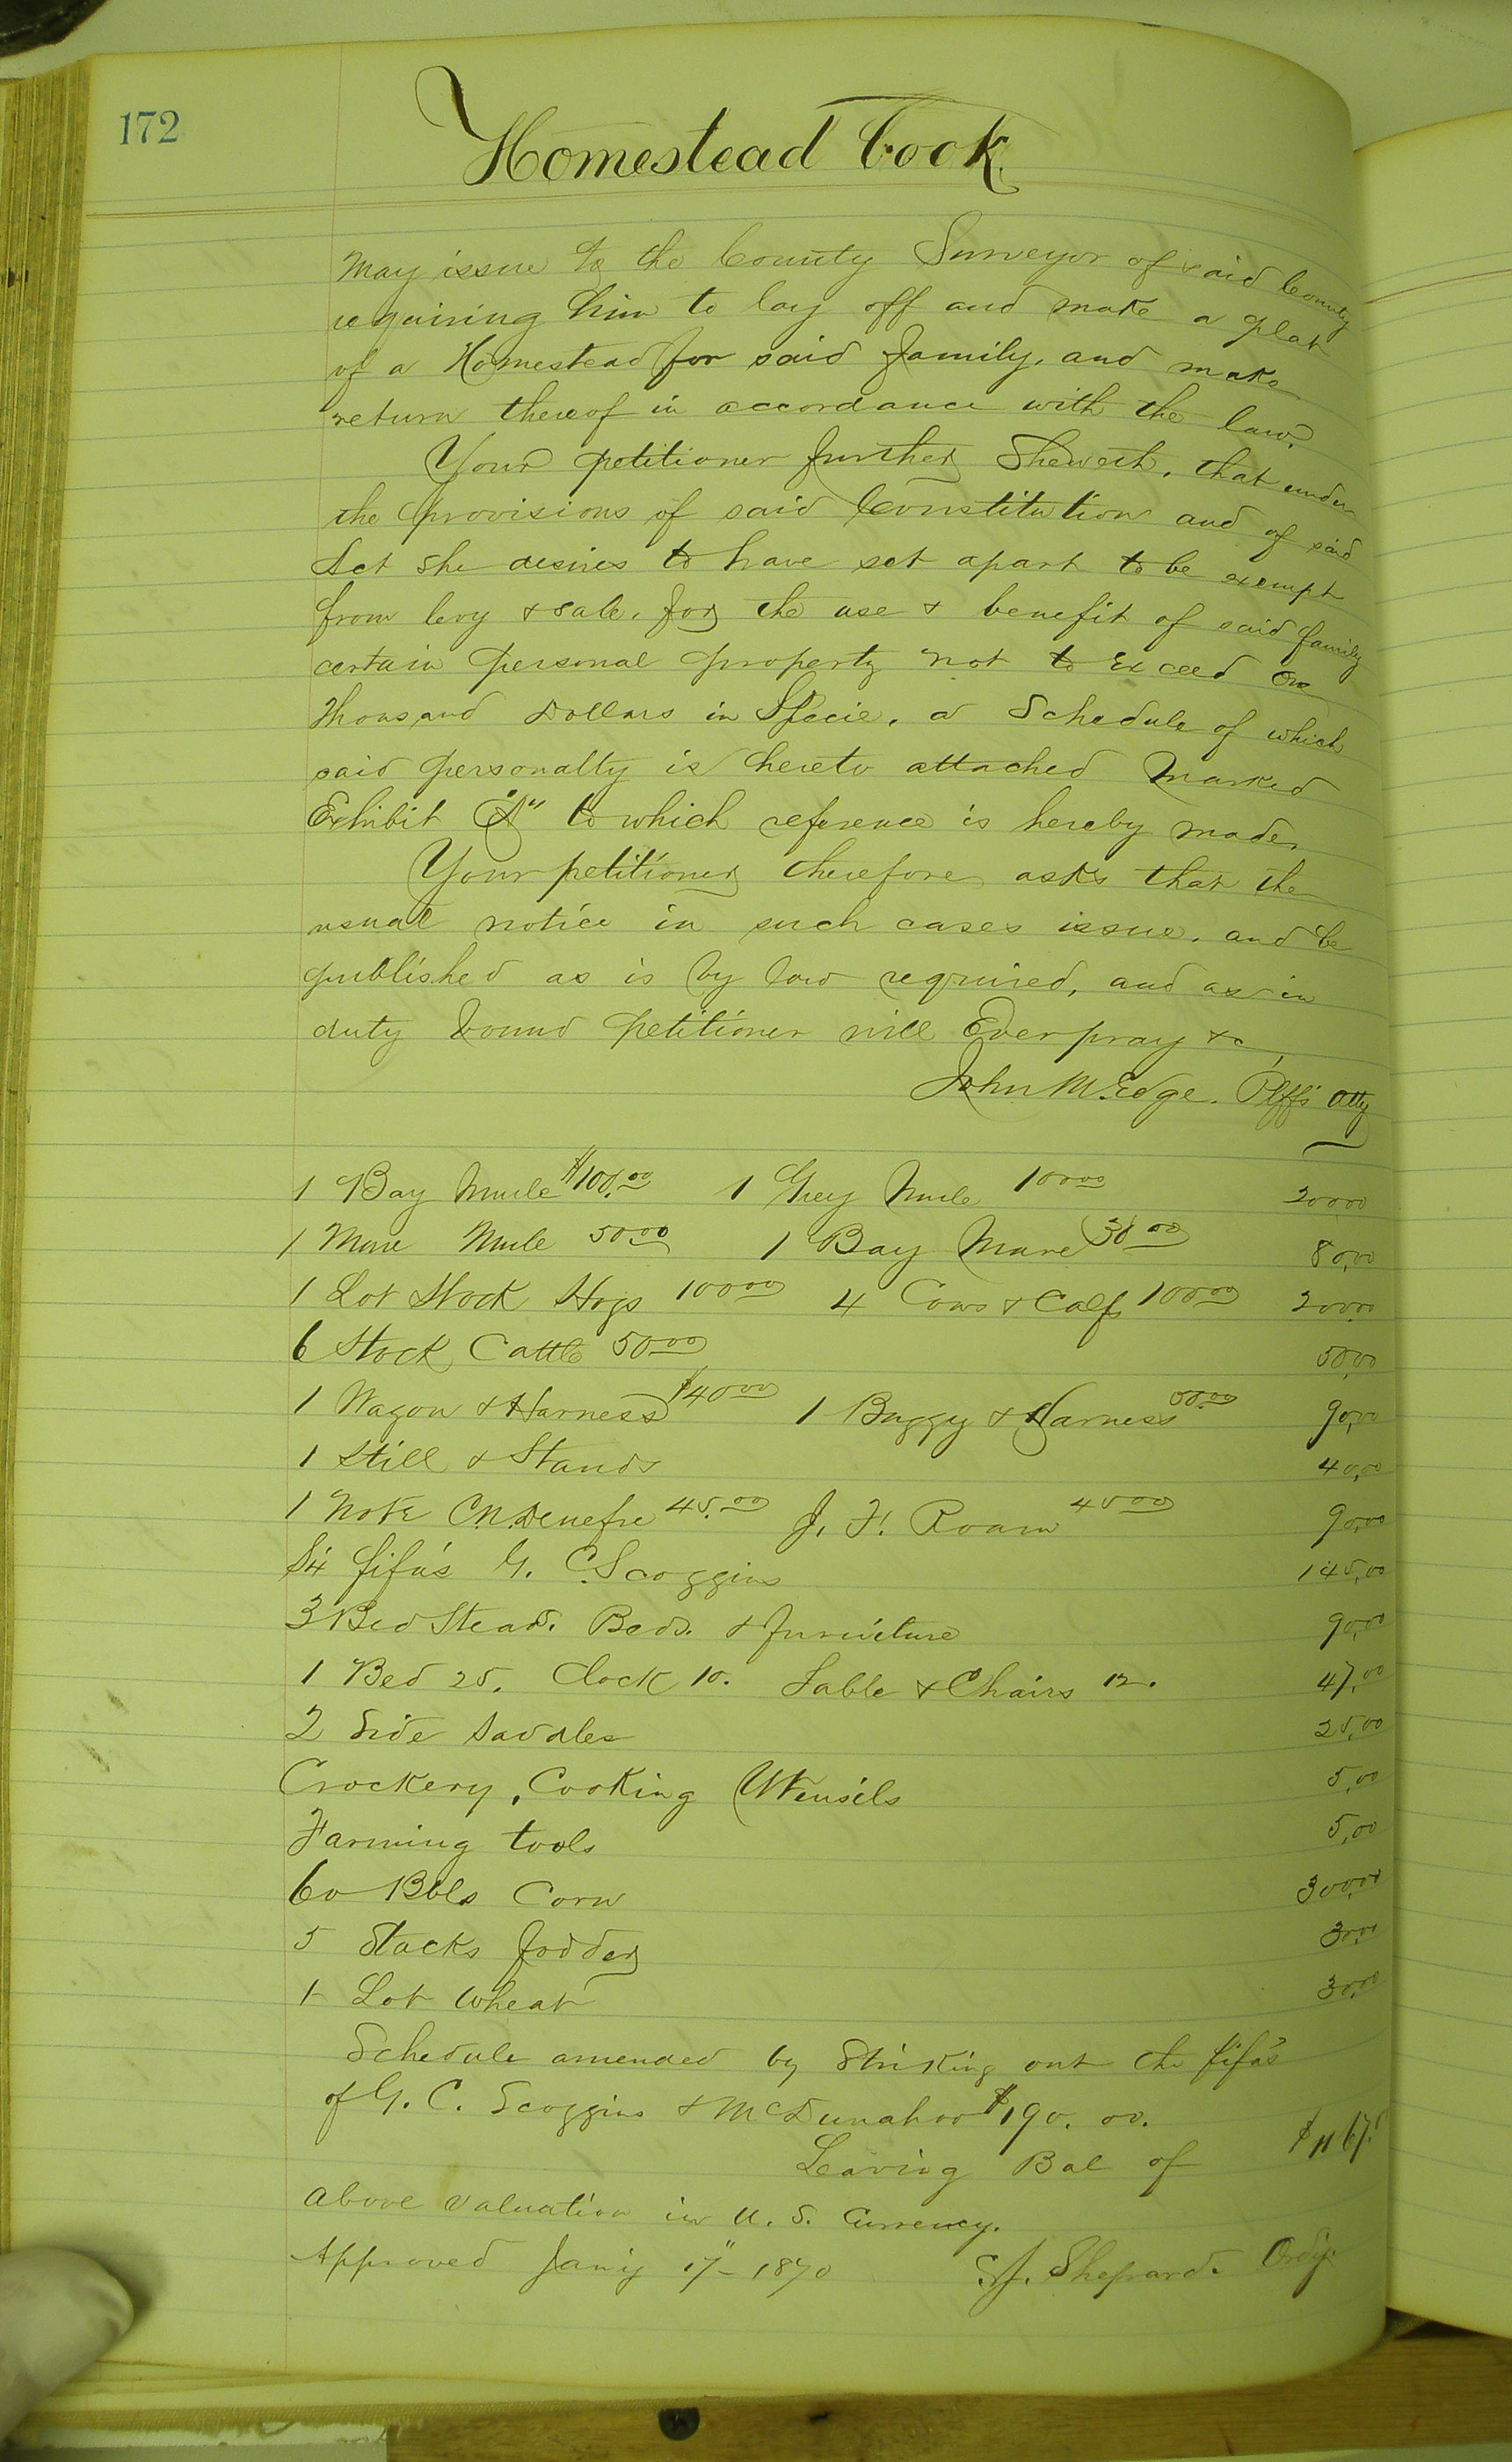 172
Homestead Book.
May issue to the County Surveyor of said County
requiring him to lay off and make a plat
of a Homestead for said family, and make
return thereof in accordance with the law.
Your petitioner further Sheweth, that under
the provisions of said Constitution and of said
Act she desires to have set apart to be exempt
from levy & sale, for the use & benefit of said family
certain personal property not to Exceed One
Thousand Dollars in Specie, a Schedule of which
said personalty is hereto attached Marked
Exhibit "A" to which reference is hereby made,
Your petitioner therefore asks that the
usual notice in such cases issue, and be
published as is by law required, and as in
duty bound petitioner will Ever pray &c
John M. Edge. Plffs Atty
1 Bay Mule $100.00 1 Grey Mule 100 00 200 00
1 Mare Mule 50 00 1 Bay Mare 30 00 80,00
1 Lot Stock Hogs 100 00 4 Cows & Calfs 100 00 200,00
6 Stock Cattle 50 00 50,00
1 Wagon & Harness $40 00 1 Buggy & Harness 50.00 90,00
1 Still & Stands 40,00
1 Note C.N. 45.00 J. F. Roam 45 00 90,00
Six fifa's G. C. Scoggins 145,00
3 Bed Stead. Beds. & furniture 90,00
1 Bed 25. Clock 10. Table & Chairs 12. 47,00
2 Side Saddles 25,00
Crockery, Cooking Utensils 5,00
Farming tools 5,00
60 Bbls Corn 300,00
5 Stacks fodder 30,00
1 Lot Wheat 30,00
Schedule amended by Striking out the fifa's
of G. C. Scoggins & McDunahoo $190. 00.
Leaving Bal of $1167.
above valuation in U. S. Currency.
Approved Jany 17" - 1870 S. J. Shepard. Ordy.